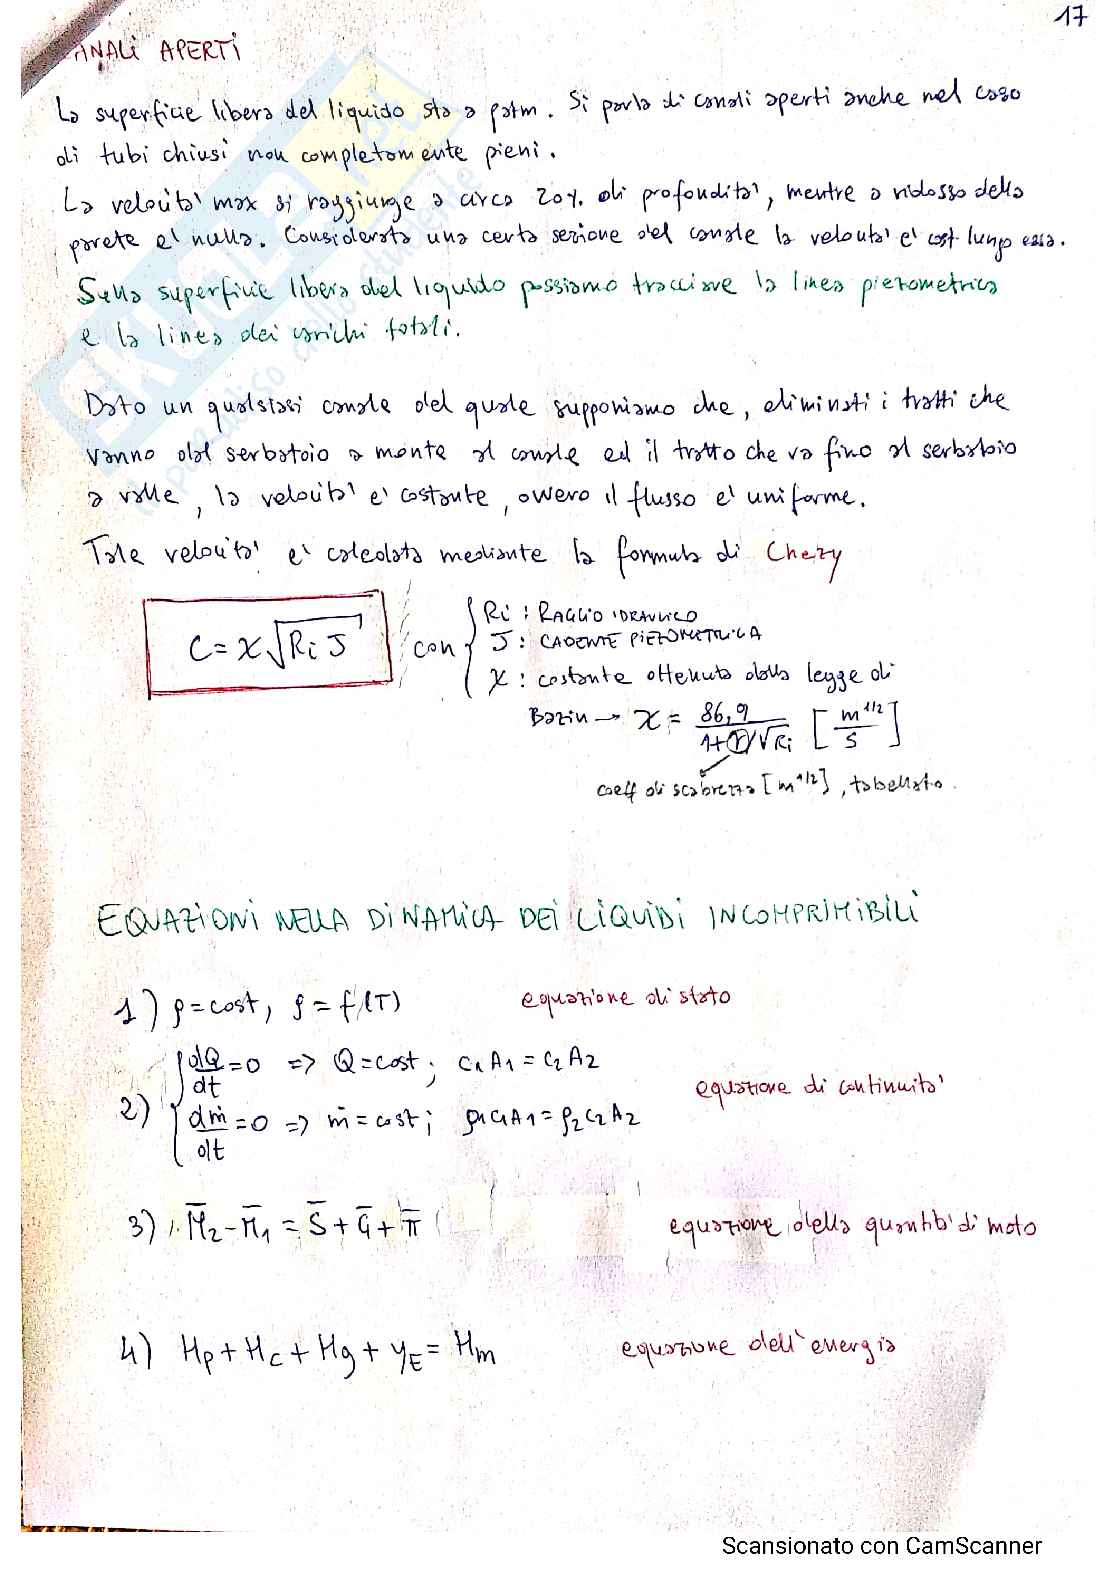 17
CANALI APERTI
La superficie libera del liquido sta a patm. Si parla di canali aperti anche nel caso
di tubi chiusi non completamente pieni.
La velocita' max si raggiunge a circa 20% di profondita', mentre a ridosso della
parete e' nulla. Considerata una certa sezione del canale la velocita' e' cost lungo essa.
Sulla superficie libera del liquido possiamo tracciare la linea piezometrica
e la linea dei carichi totali.
Dato un qualsiasi canale del quale supponiamo che, eliminati i tratti che
vanno dal serbatoio a monte al canale ed il tratto che va fino al serbatoio
a valle, la velocita' e' costante, ovvero il flusso e' uniforme.
Tale velocita' e' calcolata mediante la formula di Chezy
C = χ √(Ri J) con { Ri : RAGGIO IDRAULICO
J : CADENTE PIEZOMETRICA
χ : costante ottenuta dalla legge di
Bazin → χ = 86,9 / (1+γ/√Ri) [m^1/2 / s]
coeff di scabrezza [m^1/2], tabellato.
EQUAZIONI NELLA DINAMICA DEI LIQUIDI INCOMPRIMIBILI
1) ρ = cost, ρ = f(T) equazione di stato
2) { dQ/dt = 0 => Q = cost; c1 A1 = c2 A2
dṁ/dt = 0 => ṁ = cost; ρ1 c1 A1 = ρ2 c2 A2 equazione di continuita'
3) M̄2 - M̄1 = S̄ + Ḡ + π̄ equazione della quantita' di moto
4) Hp + Hc + Hg + yE = Hm equazione dell'energia
SKUOLA.net
il paradiso dello studente
Scansionato con CamScanner